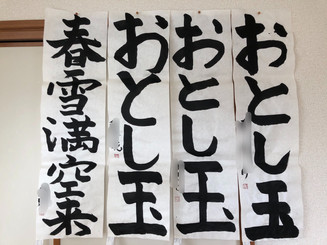 おとし玉
おとし玉
おとし玉
春雪満空来